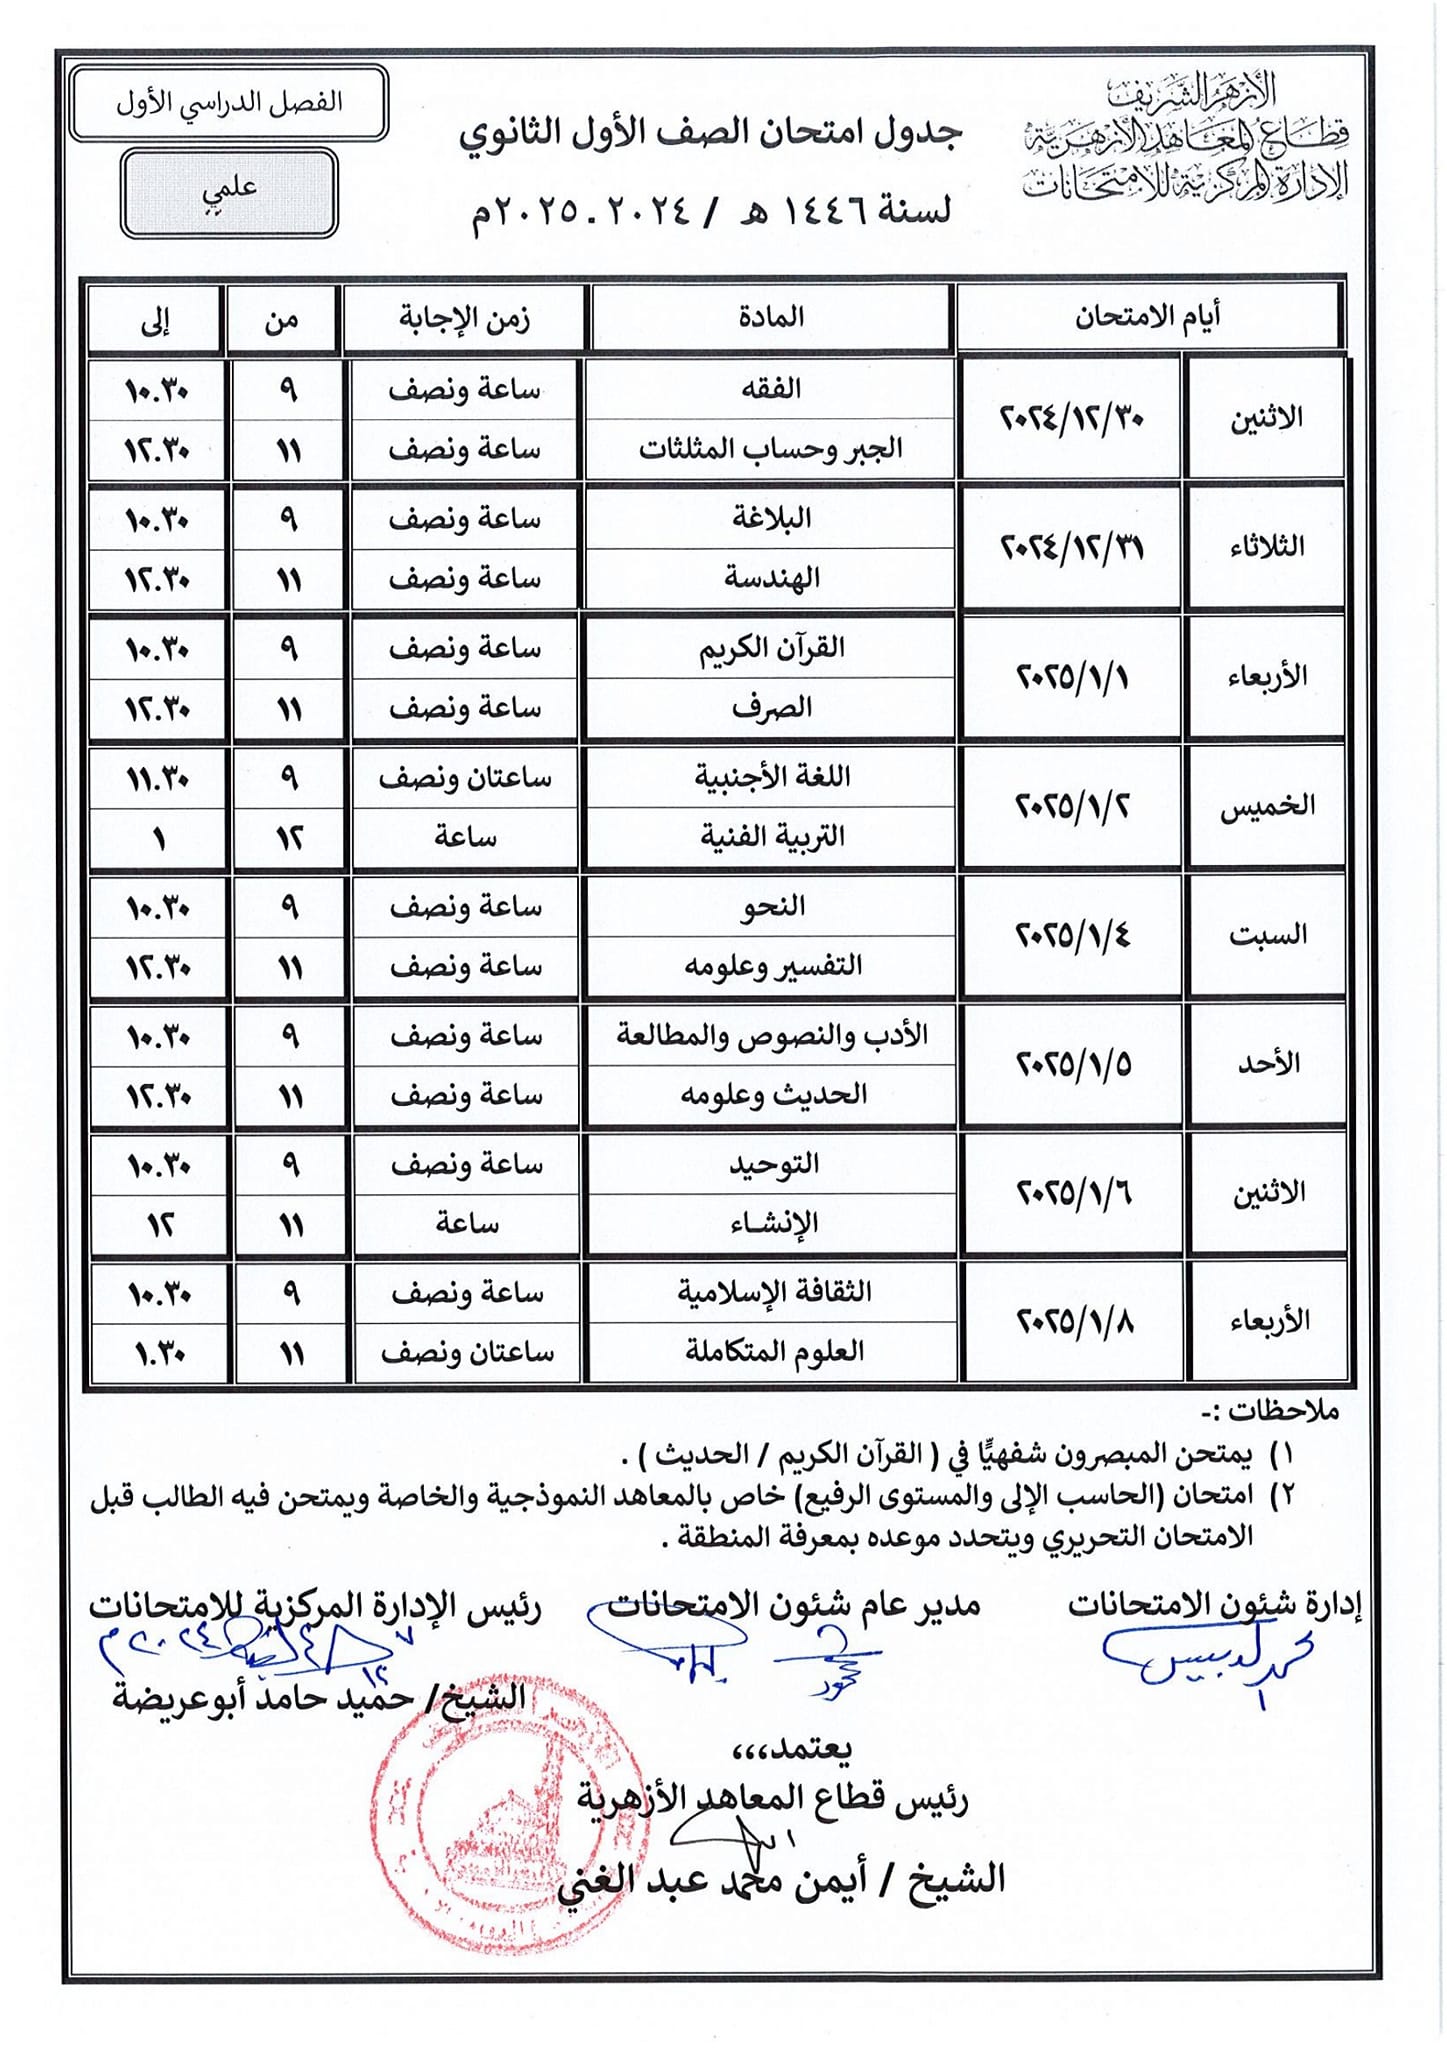 الأزهر الشريف
قطاع المعاهد الأزهرية
الإدارة المركزية للامتحانات
جدول امتحان الصف الأول الثانوي
لسنة ١٤٤٦ هـ / ٢٠٢٤ ـ ٢٠٢٥م
الفصل الدراسي الأول
علمي
أيام الامتحان المادة زمن الإجابة من إلى
الاثنين ٢٠٢٤/١٢/٣٠ الفقه ساعة ونصف ٩ ١٠.٣٠
الجبر وحساب المثلثات ساعة ونصف ١١ ١٢.٣٠
الثلاثاء ٢٠٢٤/١٢/٣١ البلاغة ساعة ونصف ٩ ١٠.٣٠
الهندسة ساعة ونصف ١١ ١٢.٣٠
الأربعاء ٢٠٢٥/١/١ القرآن الكريم ساعة ونصف ٩ ١٠.٣٠
الصرف ساعة ونصف ١١ ١٢.٣٠
الخميس ٢٠٢٥/١/٢ اللغة الأجنبية ساعتان ونصف ٩ ١١.٣٠
التربية الفنية ساعة ١٢ ١
السبت ٢٠٢٥/١/٤ النحو ساعة ونصف ٩ ١٠.٣٠
التفسير وعلومه ساعة ونصف ١١ ١٢.٣٠
الأحد ٢٠٢٥/١/٥ الأدب والنصوص والمطالعة ساعة ونصف ٩ ١٠.٣٠
الحديث وعلومه ساعة ونصف ١١ ١٢.٣٠
الاثنين ٢٠٢٥/١/٦ التوحيد ساعة ونصف ٩ ١٠.٣٠
الإنشاء ساعة ١١ ١٢
الأربعاء ٢٠٢٥/١/٨ الثقافة الإسلامية ساعة ونصف ٩ ١٠.٣٠
العلوم المتكاملة ساعتان ونصف ١١ ١.٣٠
ملاحظات :-
١) يمتحن المبصرون شفهيًّا في ( القرآن الكريم / الحديث ) .
٢) امتحان (الحاسب الإلى والمستوى الرفيع) خاص بالمعاهد النموذجية والخاصة ويمتحن فيه الطالب قبل
الامتحان التحريري ويتحدد موعده بمعرفة المنطقة .
إدارة شئون الامتحانات مدير عام شئون الامتحانات رئيس الإدارة المركزية للامتحانات
الشيخ/ حميد حامد أبوعريضة
يعتمد،،،
رئيس قطاع المعاهد الأزهرية
الشيخ / أيمن محمد عبد الغني